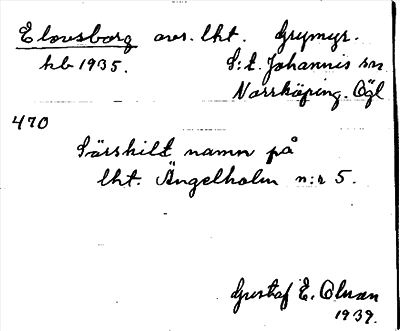 Elovsborg avs. lht. Grymyr.
kb 1935. S:t. Johannis sn
Norrköping. Ögl
470
Särskilt namn på
lht. Ängelholm n:r 5.
Gustaf E. Olman
1939.